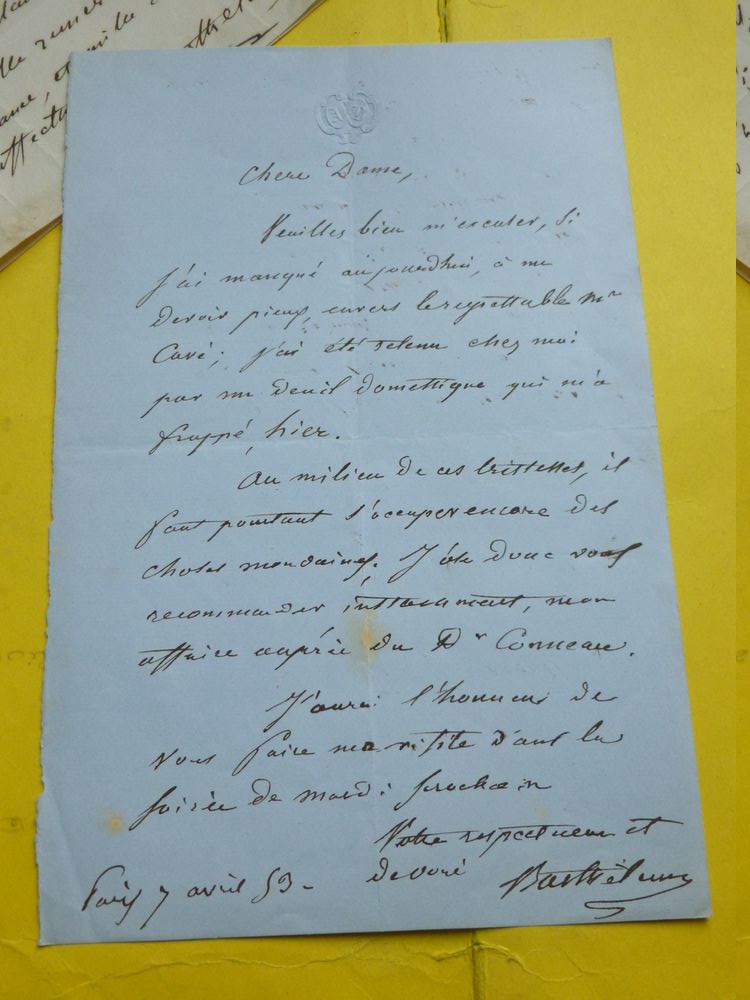 Chere Dame,
Veuillez bien m'excuser, si
j'ai manqué aujourdhui, à un
devoir pieux, envers le regrettable Mr
Cavé; j'ai été retenu chez moi
par un deuil domestique qui m'a
frappé, hier.
Au milieu de ces tristesses, il
faut pourtant s'occuper encore des
choses mondaines. J'ose donc vous
recommander instamment, mon
affaire auprès du Dr Conneau.
J'aurai l'honneur de
vous faire ma visite dans la
soirée de mardi prochain
Votre respectueux et
dévoué
Barthélemy
Paris 7 avril 53
elle
ance, et
affect